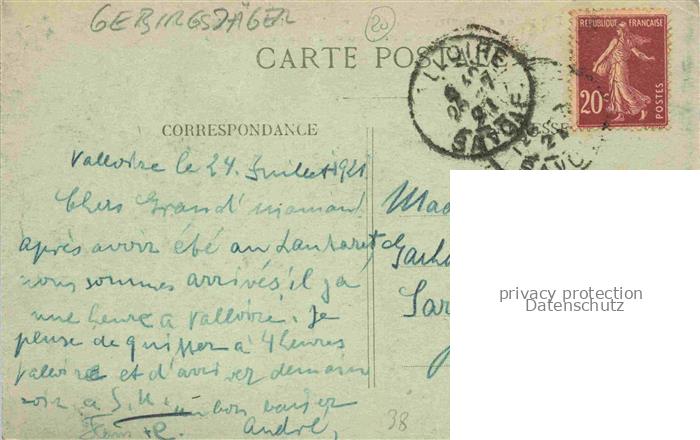 GEBIRGSJÄGER
20
CARTE POS
VOIRE
SAVOIE
REPUBLIQUE FRANÇAISE
20c
POSTES
CORRESPONDANCE
Valloire le 24 Juillet 1921
Chers Grand' maman
après avoir été au Lautaret
nous sommes arrivés il y a
une heure a Valloire. Je
pense de quitter à 4 heures
Valloire et d'arriver demain
soir a S. M. un bon baiser
André
38
privacy protection
Datenschutz